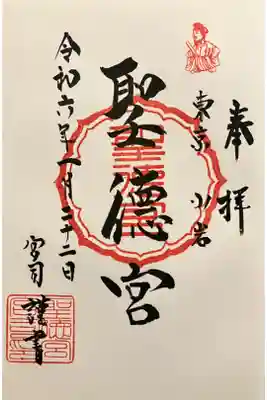 奉拝
東京 小岩
聖德宮
令和六年一月二十二日
宮司 謹書